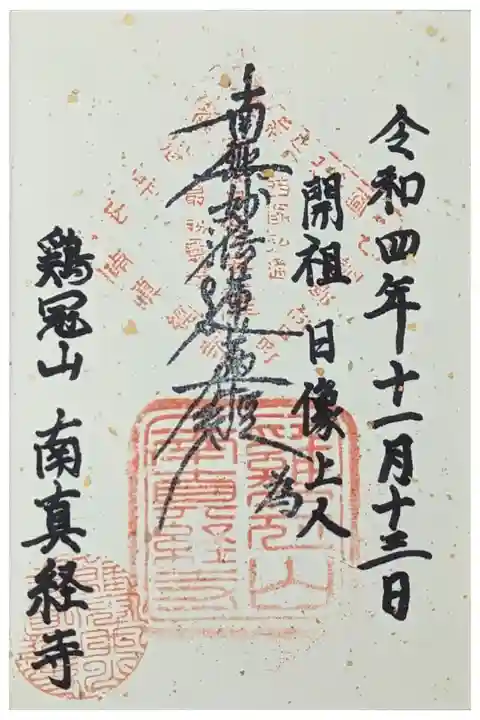 令和四年十一月十三日
開祖 日像上人
為
南無妙法蓮華経
鶏冠山 南真経寺